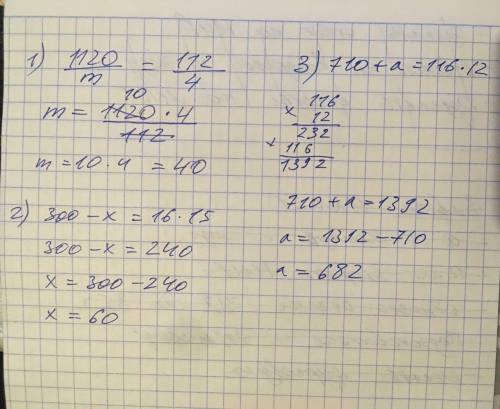 1) 1120/m = 112/4
10
m = 1120 · 4/112
m = 10 · 4 = 40
2) 300 - x = 16 · 15
300 - x = 240
x = 300 - 240
x = 60
3) 710 + a = 116 · 12
116
× 12
232
+ 116
1392
710 + a = 1392
a = 1392 - 710
a = 682